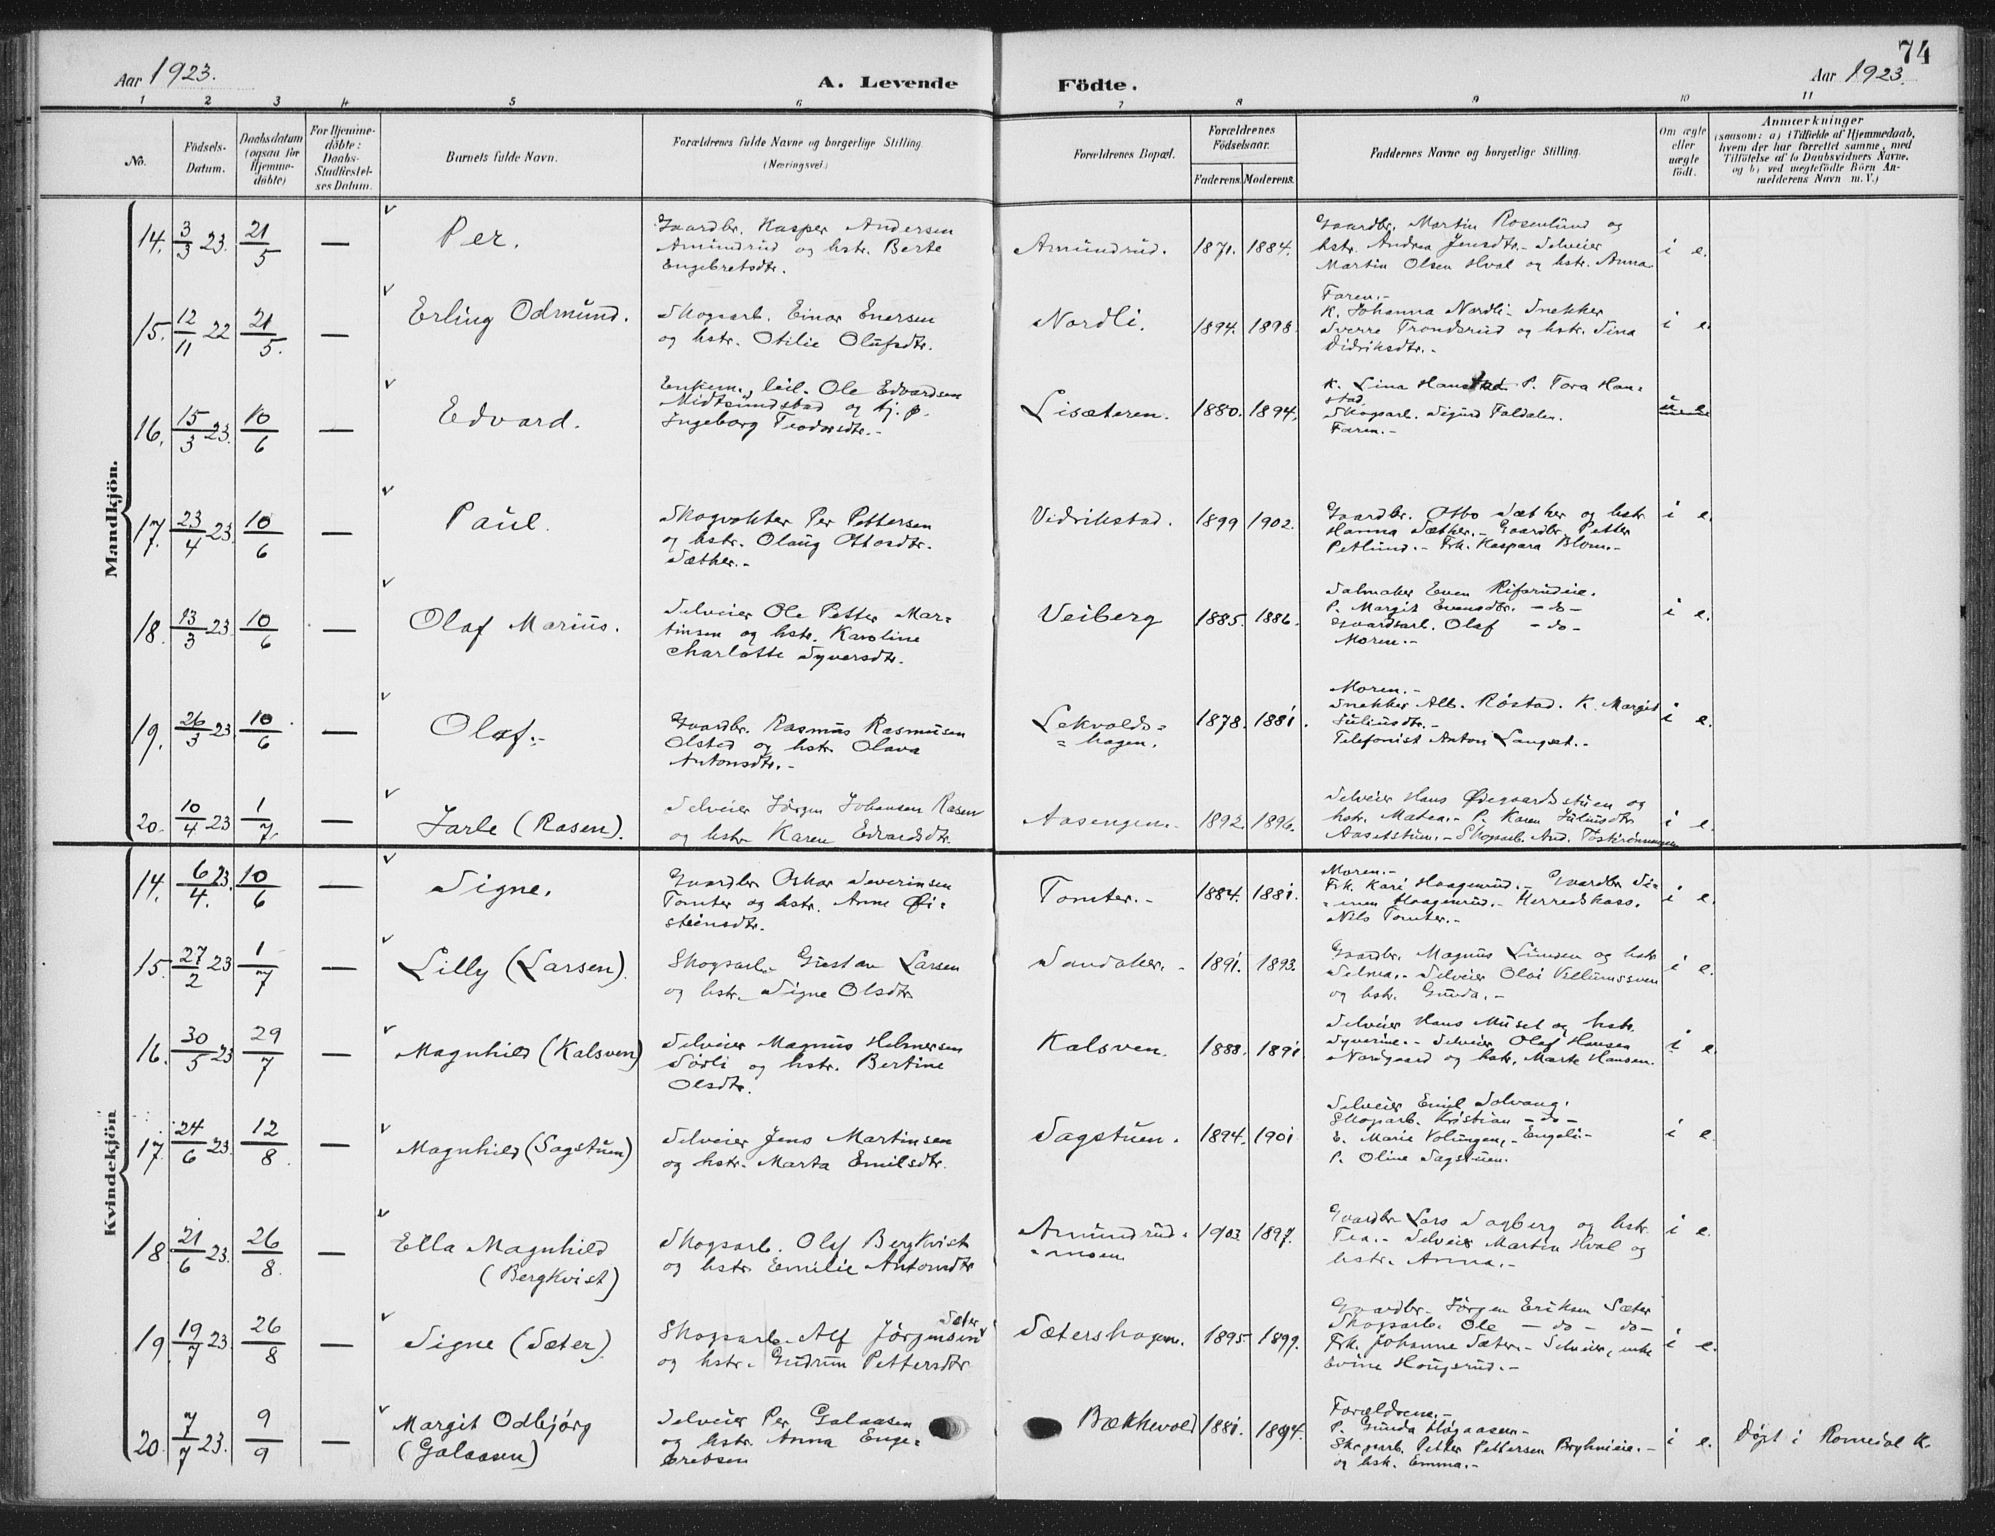 74
Aar 1923.
A. Levende Födte.
Aar 1923.
1 2 3 4 5 6 7 8 9 10 11
No.
Födsels-
Datum.
Daabsdatum
(ogsaa for
Hjemme-
döbte)
For Hjemme-
döbte:
Daabs-
Stadfæstel-
ses Datum.
Barnets fulde Navn.
Forældrenes fulde Navne og borgerlige Stilling.
(Næringsvei)
Forældrenes Bopæl.
Forældrenes
Födselsaar.
Faderens. Moderens.
Faddernes Navne og borgerlige Stilling.
Om ægte
eller
uægte
födt.
Anmærkninger
(saasom: a) i Tilfælde af Hjemmedaab,
hvem der har forrettet samme, med
Tilföielse af to Daabsvidners Navne,
og b) ved uægtefödte Börn An-
melderens Navn m. V.)
Mandkjön.
14. 3/3 23. 21/5 — Per.
Gaardbr. Kasper Andersen
Amundrud og hstr. Berte
Engebretsdtr.
Amundrud. 1871. 1884.
Gaardbr. Martin Rosenlund og
hstr. Andrea Jensdtr. - Selveier
Martin Olsen Hval og hstr. Anna
i e.
15. 12/11 22 21/5. — Erling Odmund.
Skogsarb. Einar Enersen
og hstr. Otilie Olufsdtr.
Nordli. 1894. 1898.
Faren. -
K. Johanna Nordli - Snekker
Sverre Trondsrud og hstr. Sina
Didriksdtr. -
i e.
16. 15/3 23. 10/6 — Edvard.
Enkem., leil. Ole Edvardsen
Midtsundstad og tj. p.
Ingeborg Teodorsdtr. -
Lisæteren. 1880. 1894.
K. Lina Hanstad. P. Tora Han-
stad.
Skogsarb. Sigurd Faldalen.
Faren. -
17. 23/4 23. 10/6 — Paul.
Skogvokter Per Pettersen
og hstr. Olaug Ottosdtr.
Sæther. -
Vidrikstad. 1899 1902.
Gaardbr. Otto Sæther og hstr.
Hanna Sæther. - Gaardbr. Petter
Petlund. - Frk. Kaspara Blom. -
i e.
18. 13/3 23. 10/6 — Olaf Marius.
Selveier Ole Petter Mar-
tinsen og hstr. Karoline
Charlotte Syversdtr.
Veiberg 1885. 1886.
Salmaker Even Rifsrudeie.
P. Margit Evensdtr. - do -
Gaardsarb. Olaf - do -
Moren. -
i e.
19. 26/3 23. 10/6 — Olaf. -
Gaardbr. Rasmus Rasmusen
Olstad og hstr. Olava
Antonsdtr. -
Lekvolds=
=hagen. 1878. 1881.
Moren. -
Snekker Alb. Röstad. K. Margit
Juliusdtr. -
Telefonist Anton Langset. -
i e.
20. 10/4 23 1/7. — Jarle (Rasen).
Selveier Jörgen Johansen Rasen
og hstr Karen Edvardsdtr.
Aasengen. - 1892. 1896.
Selveier Hans Ødegaardsstuen og
hstr. Matea. - P. Karen Juliusdtr
Aasetstuen. - Skogsarb. And.
i e.
Kvindekjön
14. 6/4. 23. 10/6 — Signe.
Gaardbr Oskar Severinsen
Tomter og hstr. Anne Øi=
steinsdtr.
Tomter. - 1884. 1881.
Moren. -
Frk. Kari Haagenrud. - Gaardbr Si=
=men Haagenrud. - Herredskass.
Nils Tomter. -
i e.
15. 27/2 23 1/7 — Lilly (Larsen).
Skogsarb. Gustav Larsen
og hstr. Signe Olsdtr
Sandaker. - 1891. 1893.
Gaardbr. Magnus Linsen og hstr
Selma. - Selveier
og hstr. Gunda. -
i e.
16. 30/5 23 29/7 — Magnhild (Kalsven)
Selveier Magnus Helmersen
Södli og hstr. Bertine
Olsdtr.
Kalsven. 1888. 1891
Selveier Hans Muset og hstr.
Syverine. - Selveier Olaf Hansen
Nordgaard og hstr. Marte Hansen.
i e.
17. 24/6 23. 12/8. — Magnhild (Sagstuen)
Selveier Jens Martinsen
og hstr. Marta Emilsdtr.
Sagstuen. 1894. 1901.
Selveier Emil Solvang.
Skogsarb. Kristian - do -
E. Marie Volungen, - Engeli -
P. Oline Sagstuen.
i e.
18. 21/6 23. 26/8. — Ella Magnhild
(Bergkvist)
Skogsarb. Olaf Bergkvist
og hstr Emilie Antonsdtr
Amundrud=
=moen 1903 1897.
Gaardbr Lars Sagberg og hstr.
Tea. - Selveier Martin Hval og
hstr. Anna. -
i e.
19. 19/7 23. 26/8 — Signe (Sæter).
Sæter
Skogsarb. Alf Jörgensen
og hstr. Gudrun Pettersdtr
Sætershagen. 1895 1899.
Gaardbr. Jörgen Eriksen Sæter
Skogsarb. Ole - do - do -
Frk. Johanne Sæter. - Selveier, enke
Evine Haugsrud. -
i e.
20. 7/7 23. 9/9 — Margit Odbjörg
(Galaasen)
Selveier Per Galaasen
og hstr. Anna Enge=
bretsen
Bækkevold 1881. 1894.
Forældrene. -
P. Gunda Høgaasen -
Skogsarb. Petter Pettersen Bryhnieie. -
og hstr. Emma. -
i e.
Døpt i Romedal K.